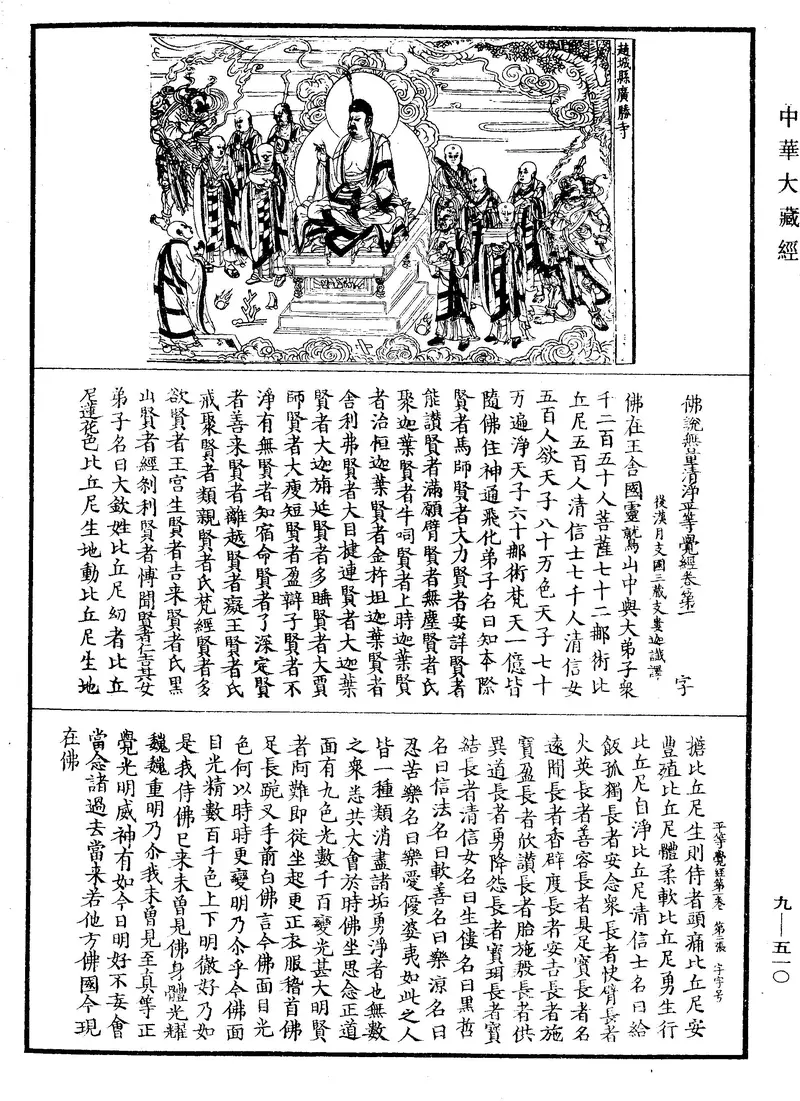 中華大藏經
趙城縣廣勝寺
佛說無量清淨平等覺經卷第一　字
後漢月支國三藏支婁迦讖譯
佛在王舍國靈鷲山中與大弟子衆
千二百五十人菩薩七十二那術比
丘尼五百人清信士七千人清信女
五百人欲天子八十万色天子七十
万遍淨天子六十那術梵天一億皆
隨佛住神通飛化弟子名曰知本際
賢者馬師賢者大力賢者安詳賢者
能讃賢者滿願臂賢者無塵賢者氏
聚迦葉賢者牛呞賢者上時迦葉賢
者治恒迦葉賢者金杵坦迦葉賢者
舍利弗賢者大目揵連賢者大迦葉
賢者大迦旃延賢者多睡賢者大賈
師賢者大瘦短賢者盈辯子賢者不
淨有無賢者知宿命賢者了深定賢
者善来賢者離越賢者癡王賢者氏
戒聚賢者類親賢者氏梵經賢者多
欲賢者王宫生賢者告来賢者氏黑
山賢者經剎利賢者博聞賢者仁吉其女
弟子名曰大欽姓比丘尼幼者比丘
尼蓮花色比丘尼生地動比丘尼生地
擔比丘尼生則侍者頭痛比丘尼安
豐殖比丘尼體柔軟比丘尼勇生行
比丘尼自淨比丘尼清信士名曰給
飯孤獨長者安念衆長者快臂長者
火英長者善容長者具足寶長者名
遠聞長者香辟度長者安吉長者施
寶盈長者欣讃長者胎施殷長者供
異道長者勇降怨長者寶珥長者寶
結長者清信女名曰生僂名曰黑哲
名曰信法名曰軟善名曰樂涼名曰
忍苦樂名曰樂愛優婆夷如此之人
皆一種類消盡諸垢勇淨者也無數
之衆悉共大會於時佛坐思念正道
面有九色光數千百變光甚大明賢
者阿難即從坐起更正衣服稽首佛
足長跪叉手前白佛言今佛面目光
色何以時時更變明乃尒乎今佛面
目光精數百千色上下明徹好乃如
是我侍佛已来未曾見佛身體光耀
巍巍重明乃尒我未曾見至真等正
覺光明威神有如今日明好不妄會
當念諸過去當来若他方佛國今現
在佛
平等覺經第一卷　第二張　字字号
九—五一〇